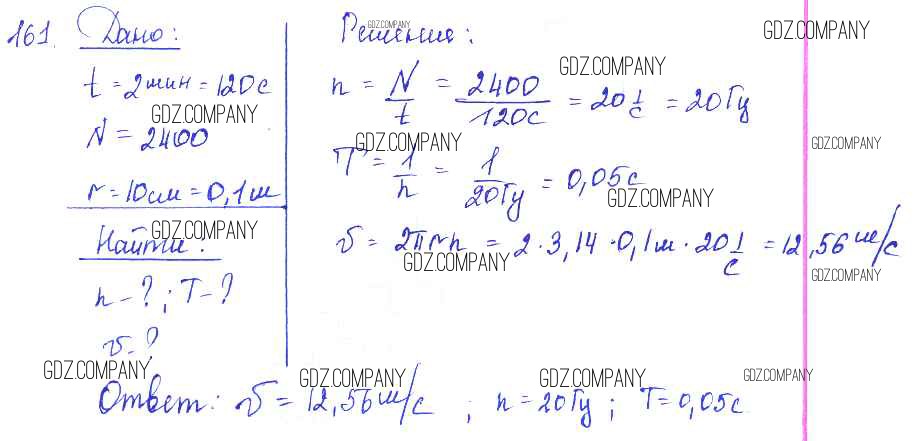 161. Дано:
t = 2мин = 120с
N = 2400
r = 10см = 0,1м
Найти:
n - ? ; T - ?
v - ?
Решение:
n = N/t = 2400/120с = 20 1/с = 20Гц
T = 1/n = 1/20Гц = 0,05с
v = 2πrn = 2·3,14·0,1м·20 1/с = 12,56 м/с
Ответ: v = 12,56 м/с ; n = 20Гц ; T = 0,05с
GDZ.COMPANY
GDZ.COMPANY
GDZ.COMPANY
GDZ.COMPANY
GDZ.COMPANY
GDZ.COMPANY
GDZ.COMPANY
GDZ.COMPANY
GDZ.COMPANY
GDZ.COMPANY
GDZ.COMPANY
GDZ.COMPANY
GDZ.COMPANY
GDZ.COMPANY